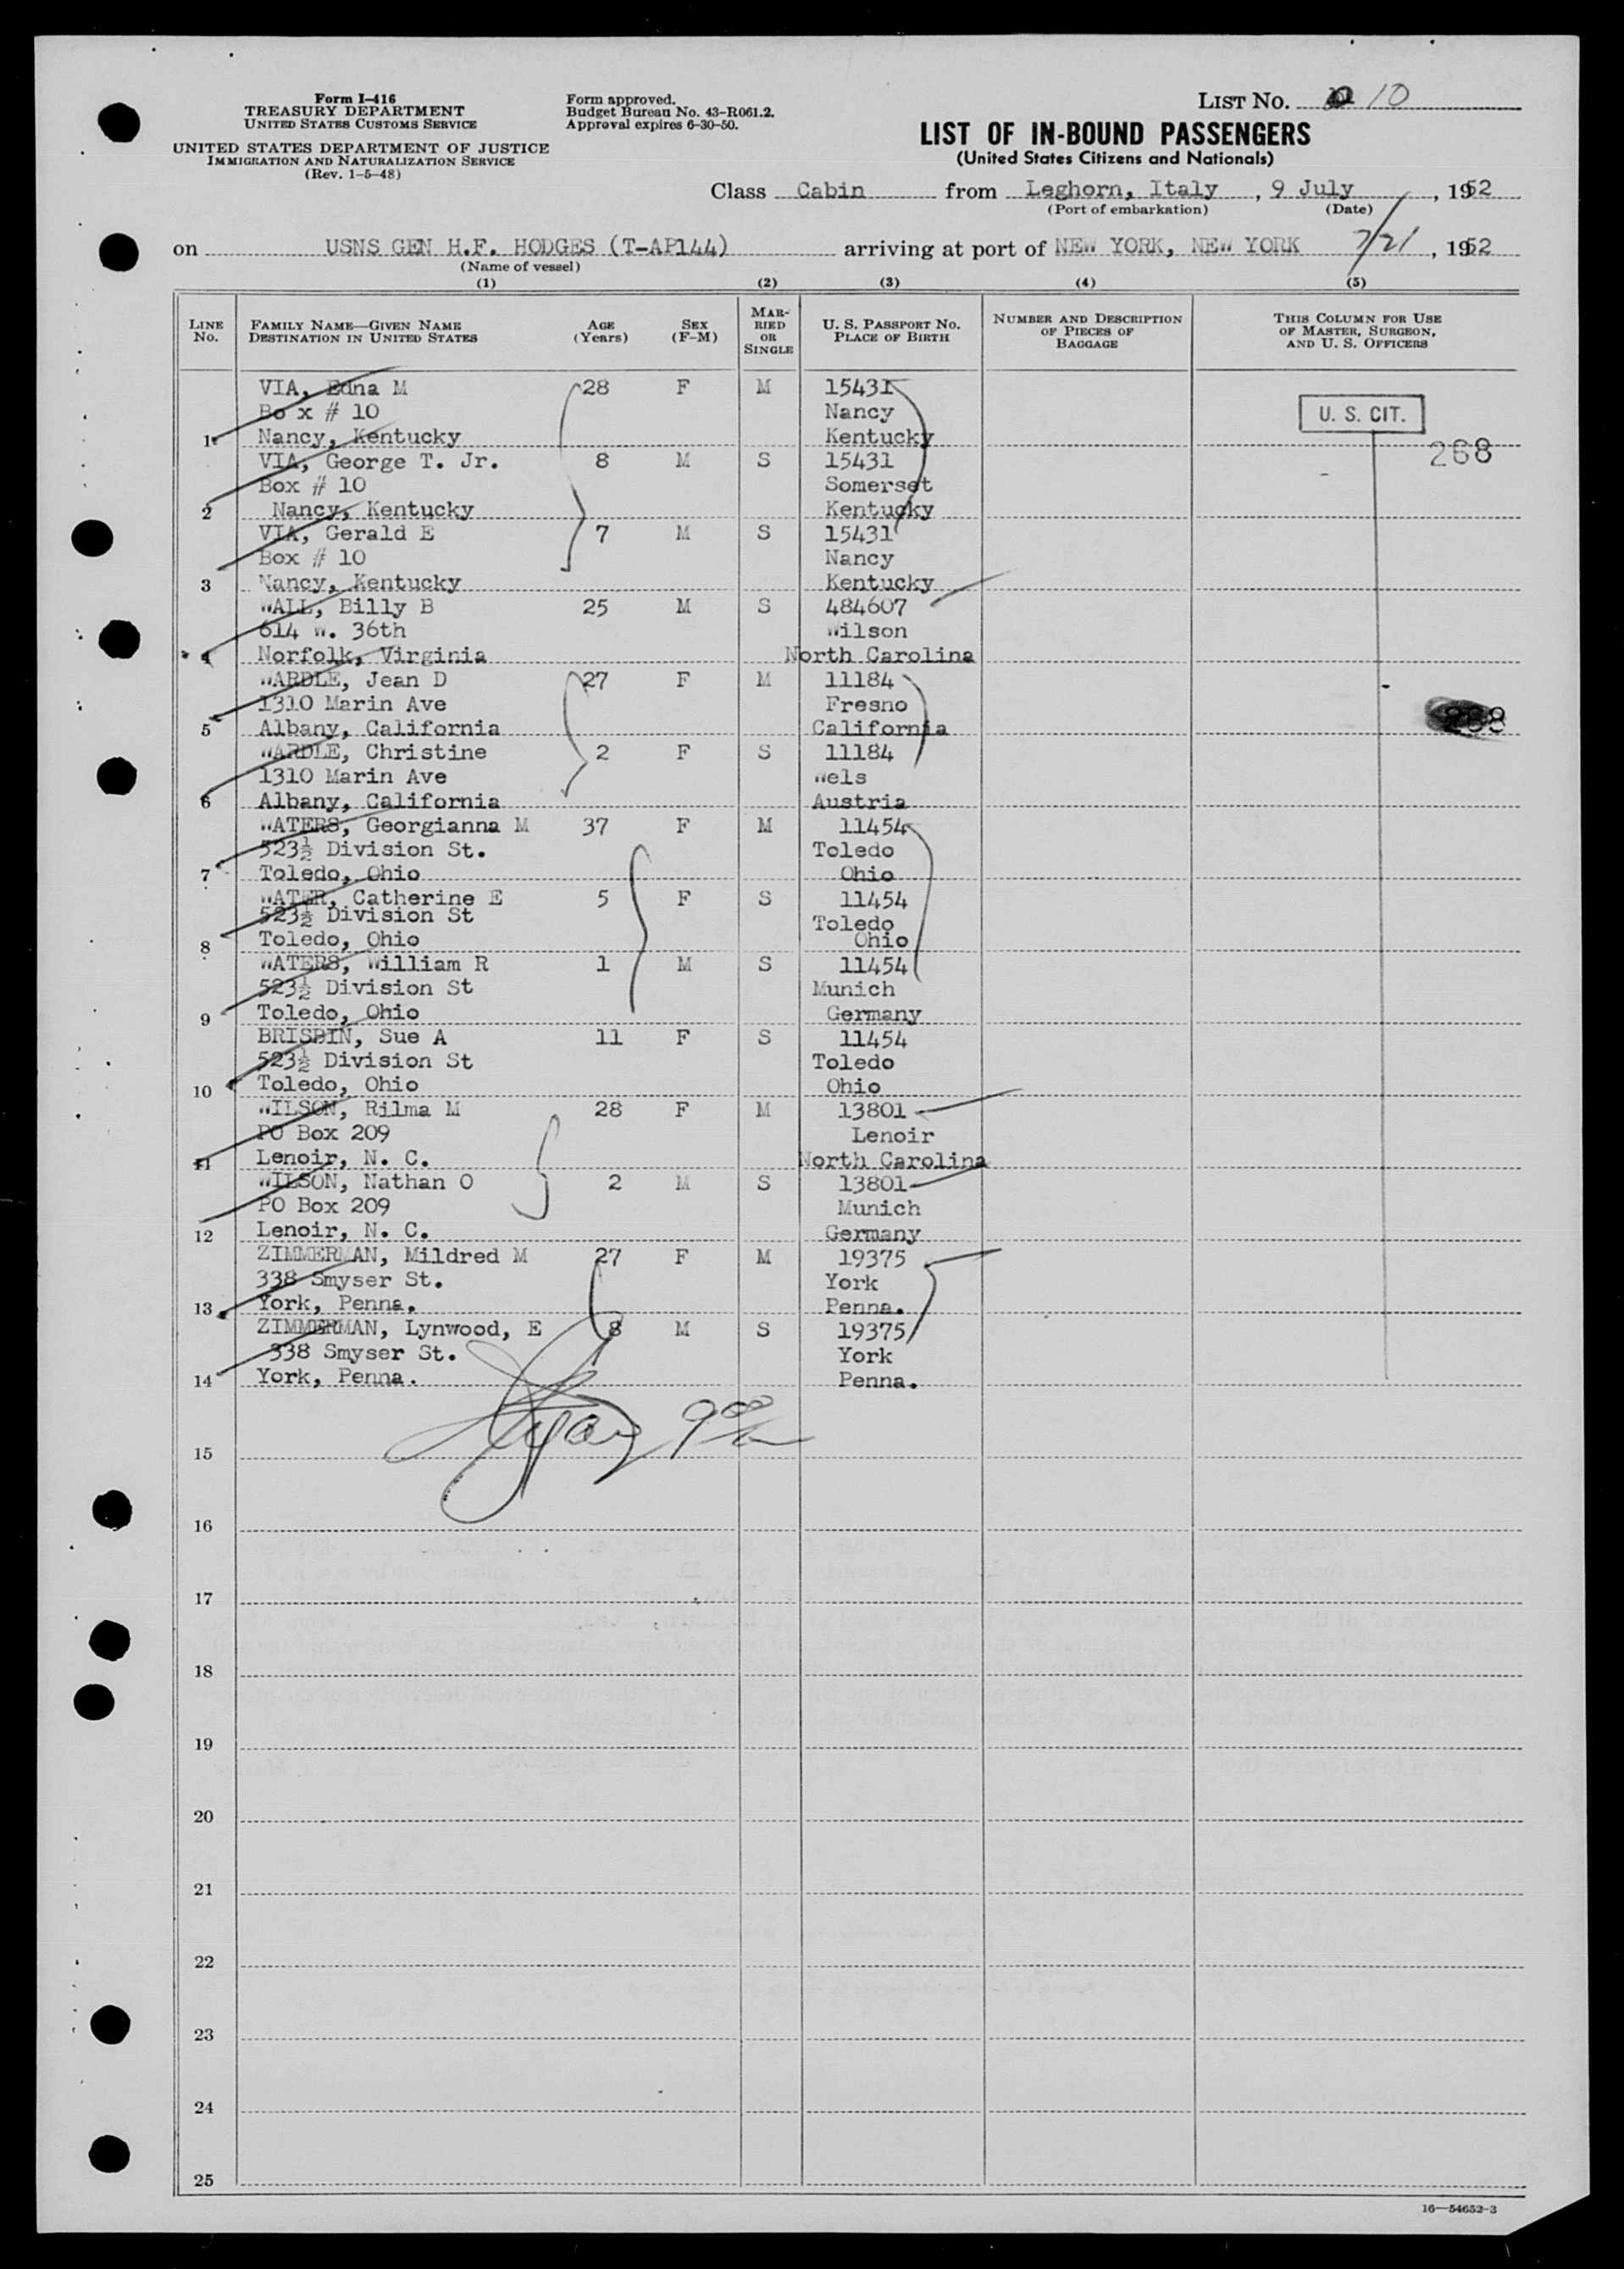 Form I-416
TREASURY DEPARTMENT
UNITED STATES CUSTOMS SERVICE
UNITED STATES DEPARTMENT OF JUSTICE
IMMIGRATION AND NATURALIZATION SERVICE
(Rev. 1-5-48)
Form approved.
Budget Bureau No. 43-R061.2.
Approval expires 6-30-50.
LIST NO. 10
LIST OF IN-BOUND PASSENGERS
(United States Citizens and Nationals)
Class Cabin from Leghorn, Italy, 9 July, 1952
(Port of embarkation) (Date)
on USNS GEN H.F. HODGES (T-AP144) arriving at port of NEW YORK, NEW YORK 7/21, 1952
(Name of vessel)
(1) (2) (3) (4) (5)
LINE No. FAMILY NAME—GIVEN NAME DESTINATION IN UNITED STATES AGE (Years) SEX (F-M) MARRIED OR SINGLE U. S. PASSPORT NO. PLACE OF BIRTH NUMBER AND DESCRIPTION OF PIECES OF BAGGAGE THIS COLUMN FOR USE OF MASTER, SURGEON, AND U. S. OFFICERS
VIA, Edna M 28 F M 15431
Bo x # 10 Nancy U. S. CIT.
1 Nancy, Kentucky Kentucky 268
VIA, George T. Jr. 8 M S 15431
Box # 10 Somerset
2 Nancy, Kentucky Kentucky
VIA, Gerald E 7 M S 15431
Box # 10 Nancy
3 Nancy, Kentucky Kentucky
WALL, Billy B 25 M S 484607
614 W. 36th Wilson
4 Norfolk, Virginia North Carolina
WARDLE, Jean D 27 F M 11184
1310 Marin Ave Fresno
5 Albany, California California 268
WARDLE, Christine 2 F S 11184
1310 Marin Ave Wels
6 Albany, California Austria
WATERS, Georgianna M 37 F M 11454
523½ Division St. Toledo
7 Toledo, Ohio Ohio
WATER, Catherine E 5 F S 11454
523½ Division St Toledo
8 Toledo, Ohio Ohio
WATERS, William R 1 M S 11454
523½ Division St Munich
9 Toledo, Ohio Germany
BRISBIN, Sue A 11 F S 11454
523½ Division St Toledo
10 Toledo, Ohio Ohio
WILSON, Rilma M 28 F M 13801
PO Box 209 Lenoir
11 Lenoir, N. C. North Carolina
WILSON, Nathan O 2 M S 13801
PO Box 209 Munich
12 Lenoir, N. C. Germany
ZIMMERMAN, Mildred M 27 F M 19375
338 Smyser St. York
13 York, Penna. Penna.
ZIMMERMAN, Lynwood, E 8 M S 19375
338 Smyser St. York
14 York, Penna. Penna.
15
16
17
18
19
20
21
22
23
24
25
16—54652-3